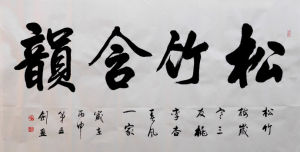 松竹含韻
松竹
梅歲
寒三
友桃
李杏
春風
一家
歲在
丙申